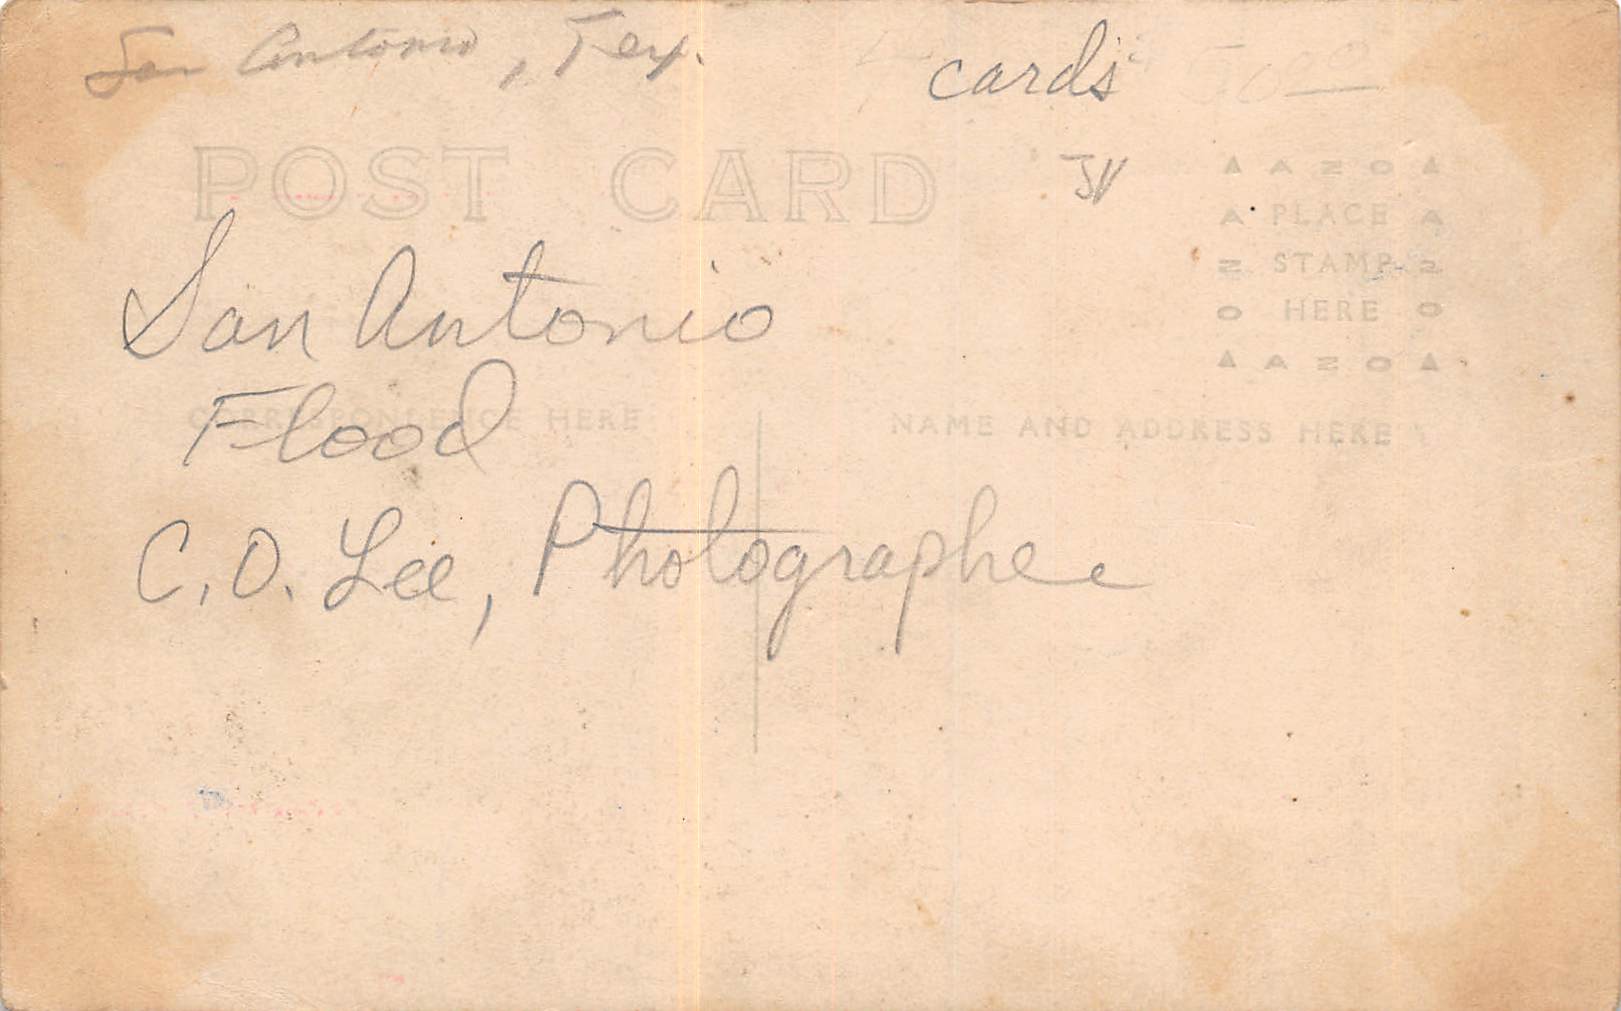 San Antonio, Tex.
cards
POST CARD
JV
AZO
PLACE
STAMP
HERE
AZO
San Antonio
Flood
CORRESPONDENCE HERE
NAME AND ADDRESS HERE
C. O. Lee, Photographer